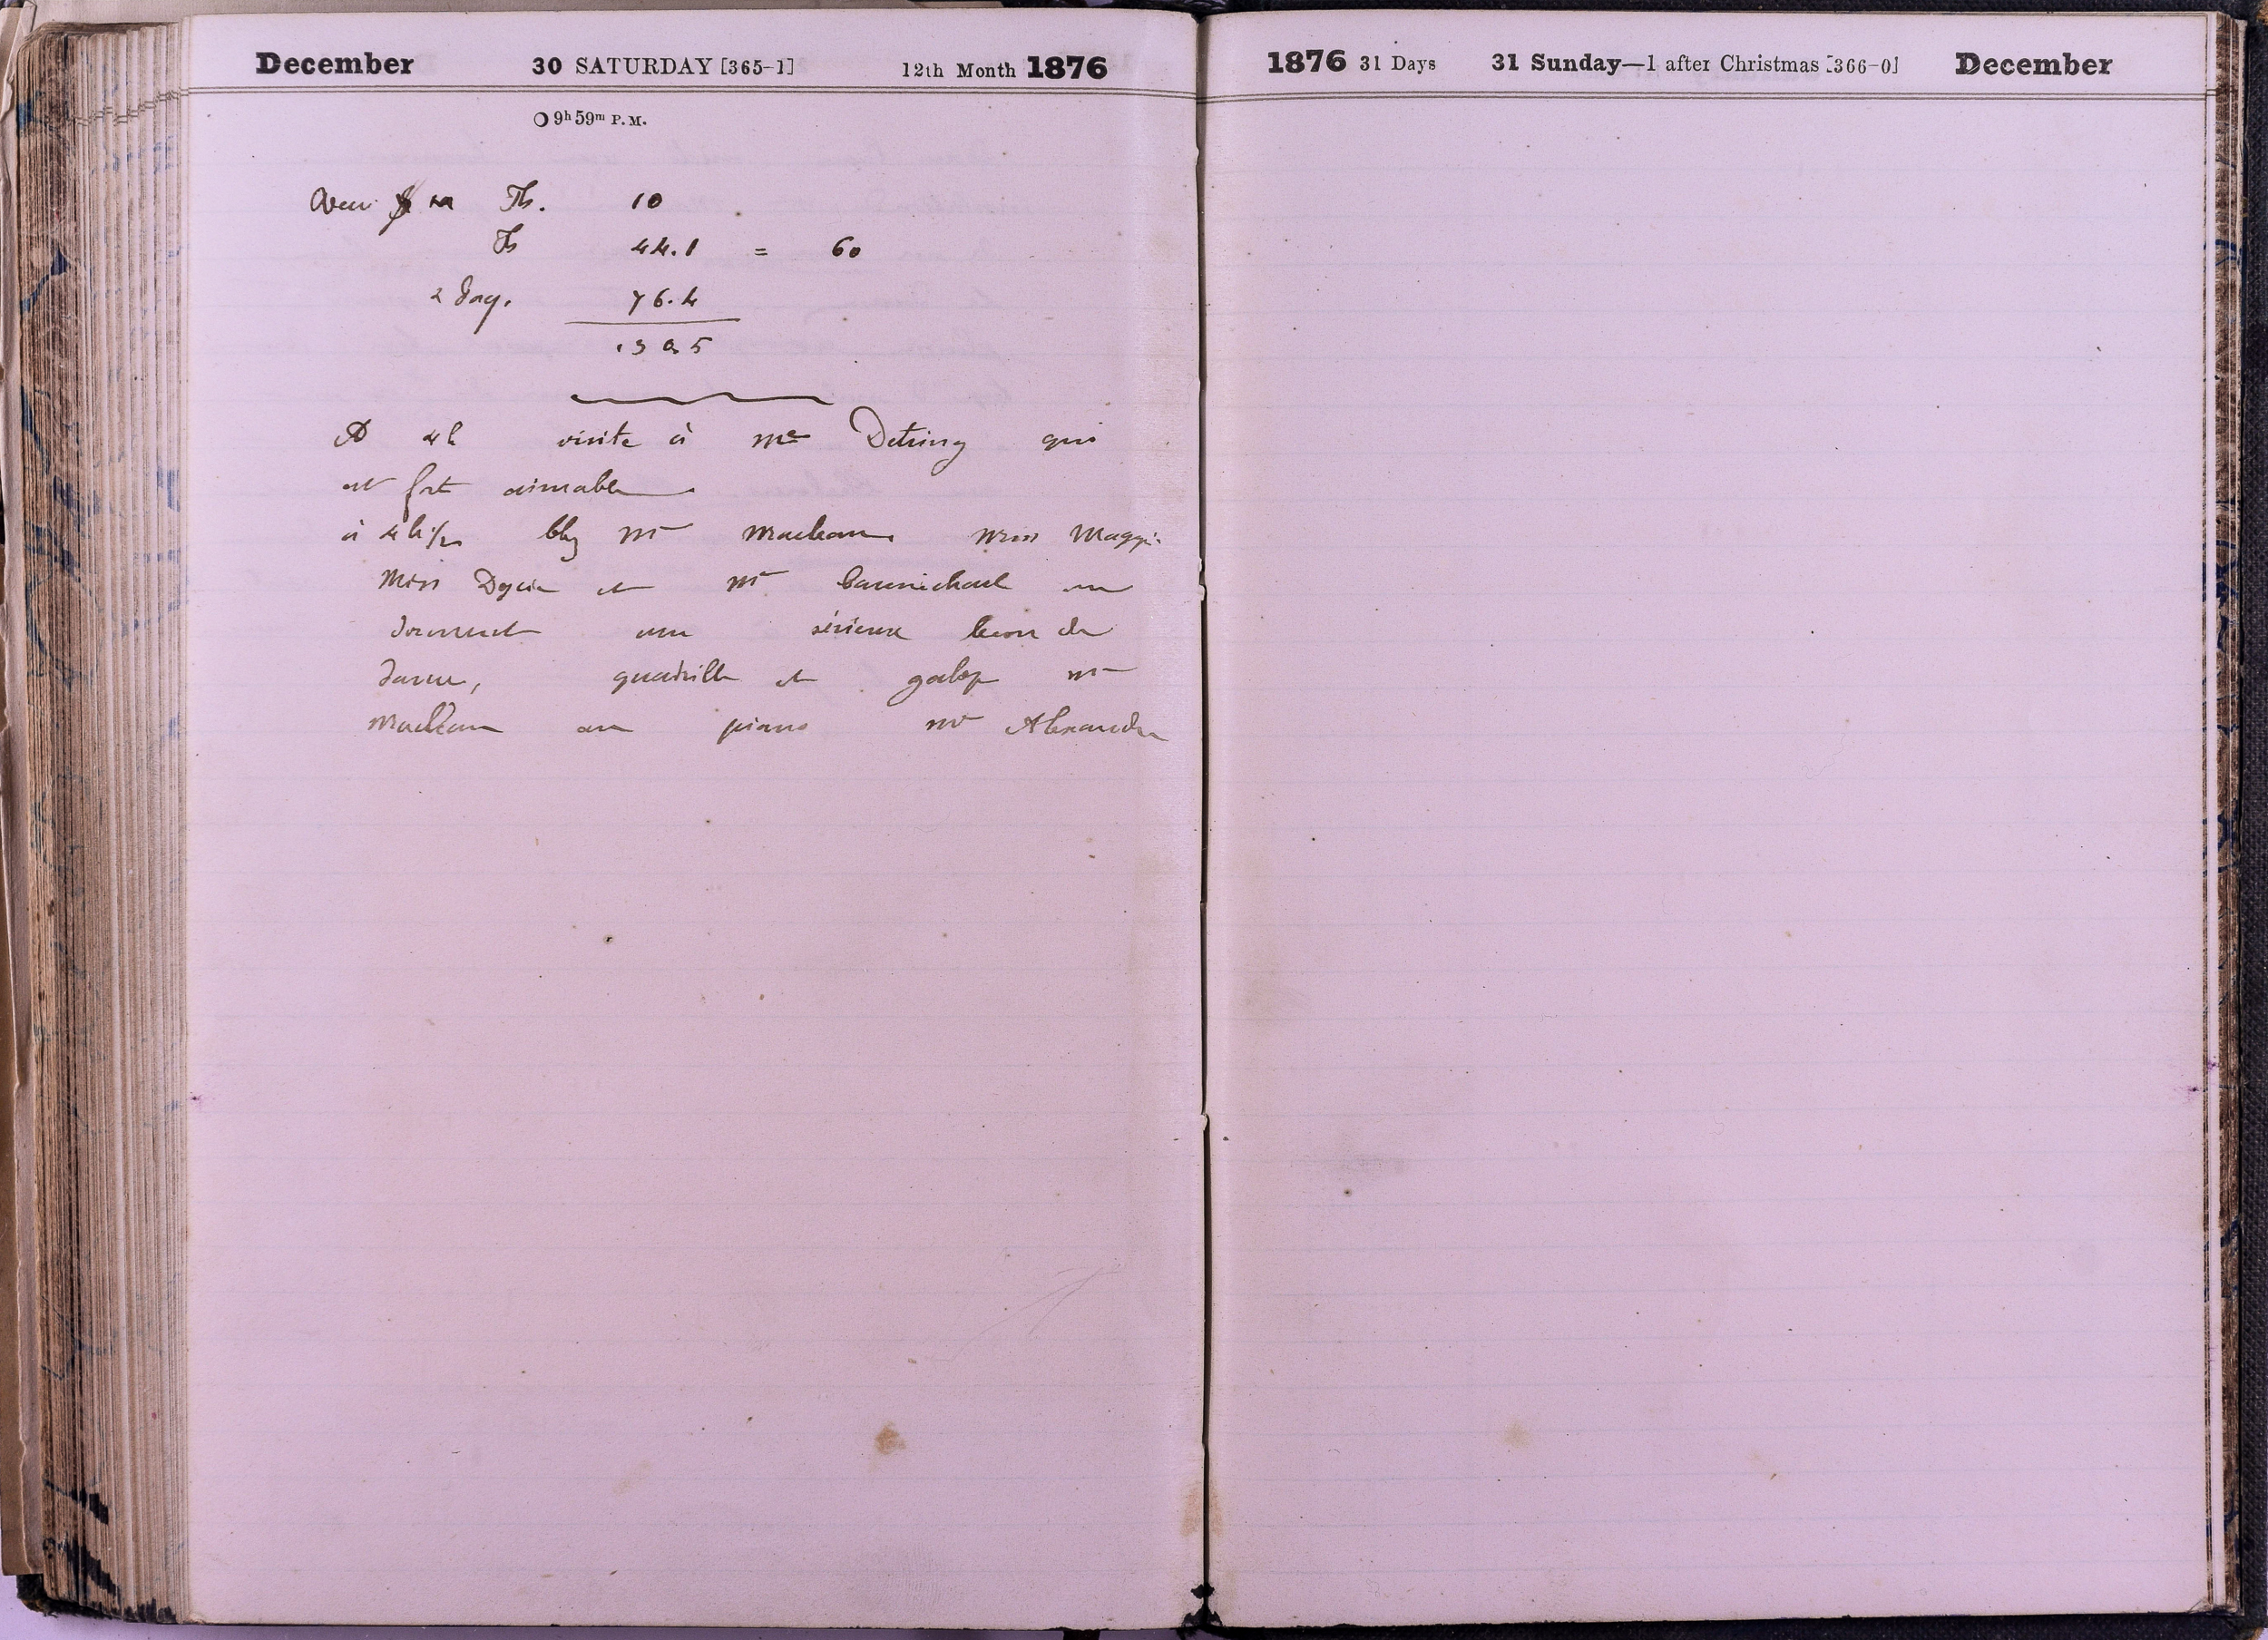 December 30 SATURDAY [365-1] 12th Month 1876
9h 59m P.M.
Th. 10
Th 44.1 = 60
2 Day. 76.4
A 4h visite à Me Detring qui
est fort aimable
à 4h 1/2 chez Mr Maclean Miss Maggie
Miss Et Mr Carmichael me
donnent une sérieuse leçon de
danse, quadrille et galop Mr
Maclean au piano Mr Alexandre
1876 31 Days 31 Sunday—1 after Christmas [366-0] December